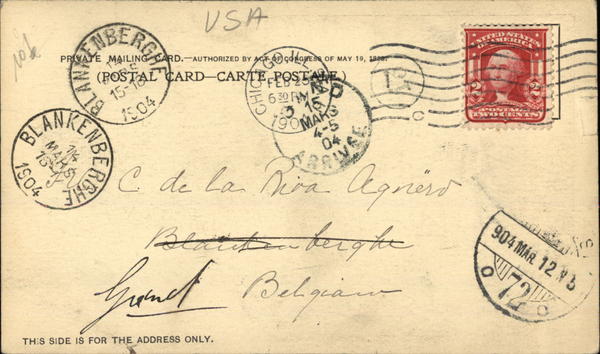 USA
PRIVATE MAILING CARD.—AUTHORIZED BY ACT OF CONGRESS OF MAY 19, 1898.
(POSTAL CARD—CARTE POSTALE.)
BLANKENBERGHE
15-16
1904
CHICAGO, ILL.
FEB 29
6 30 PM
1904
MARS
4-5
04
ARRIVÉE
UNITED STATES
OF AMERICA
2 2
POSTAGE
TWO CENTS
BLANKENBERGHE
14
MARS
1904
C. de la Riva Agüero
Blankenberghe
Gand Belgium
904 MAR 12 V 5
72
THIS SIDE IS FOR THE ADDRESS ONLY.